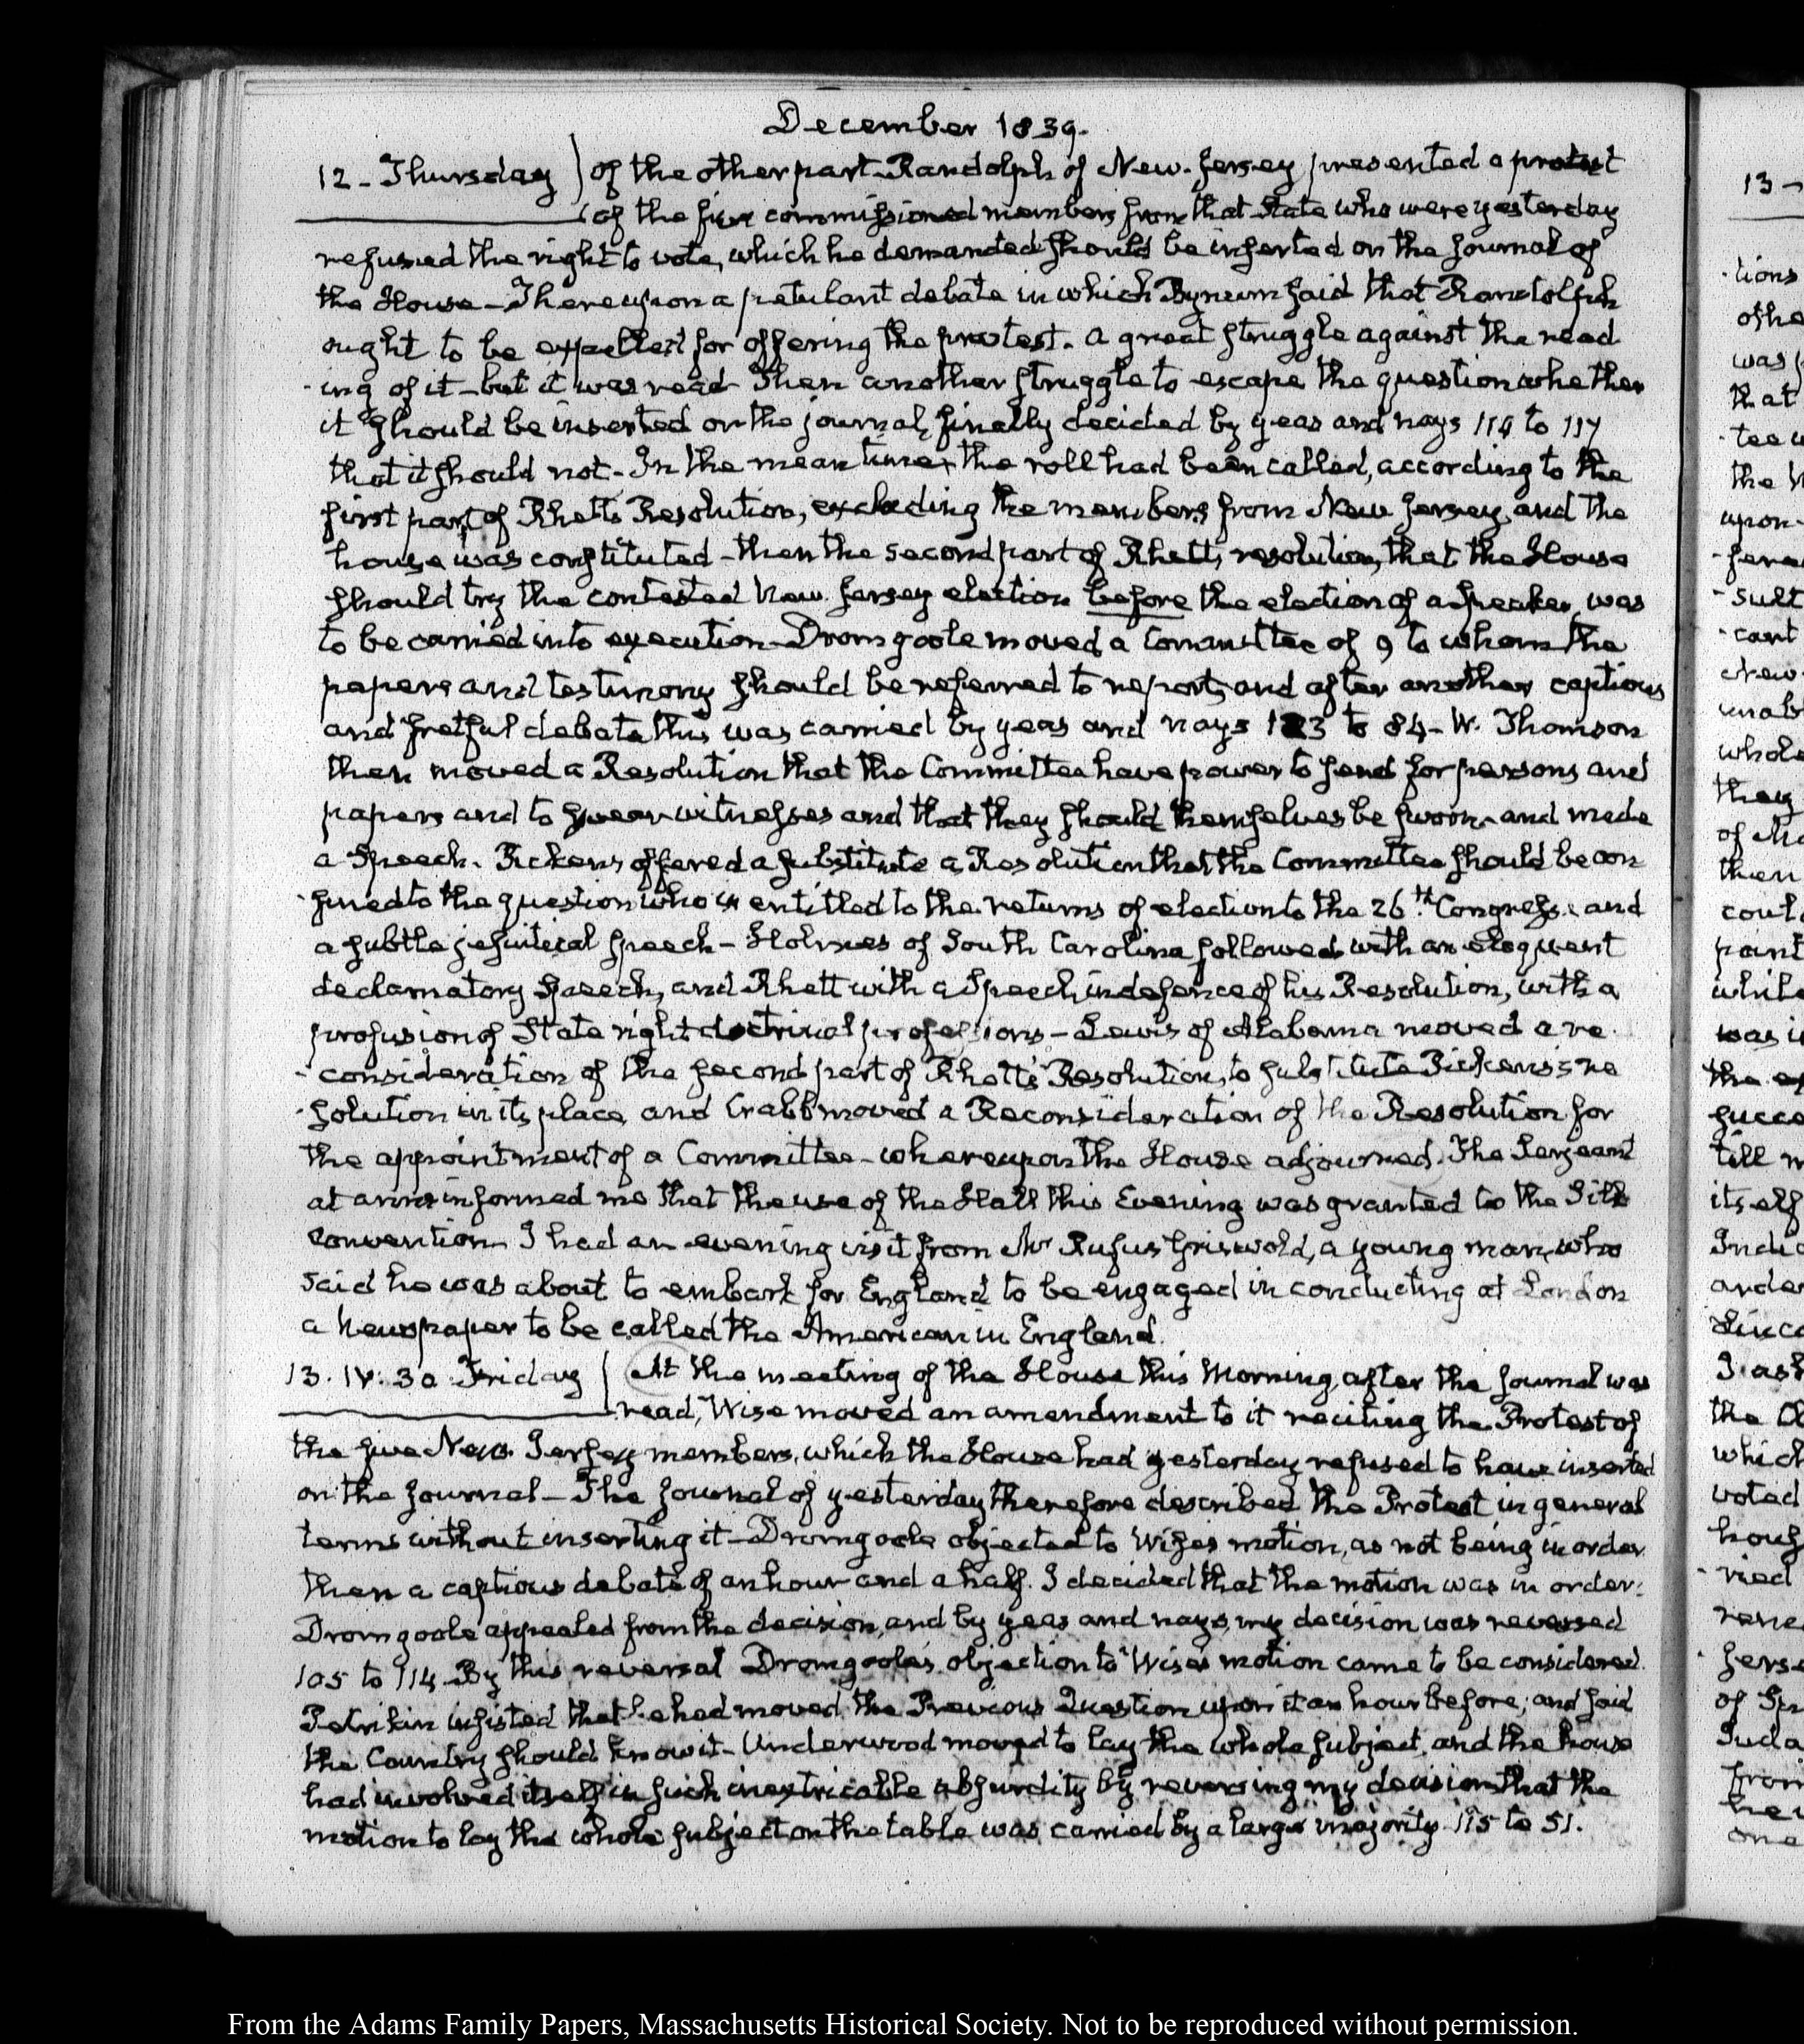 December 1839.
12 - Thursday of the other part. Randolph of New-Jersey presented a protest
of the five commissioned members from that State who were yesterday
refused the right to vote, which he demanded should be inserted on the journal of
the House - Thereupon a petulant debate in which Bynum said that Randolph
ought to be expelled for offering the protest. A great struggle against the read
-ing of it - but it was read - Then another struggle to escape the question whether
it should be inserted on the journal, finally decided by yeas and nays 114 to 117
that it should not - In the mean time, the roll had been called, according to the
first part of Rhett's Resolution, excluding the members from New Jersey, and the
house was constituted - then the second part of Rhett's resolution, that the House
should try the contested New Jersey election before the election of a Speaker, was
to be carried into execution - Dromgoole moved a Committee of 9 to whom the
papers and testimony should be referred to report, and after another captious
and fretful debate this was carried by yeas and nays 123 to 84 - W. Thomson
then moved a Resolution that the Committee have power to send for persons and
papers and to swear witnesses and that they should themselves be sworn - and made
a Speech. Pickens offered a substitute a Resolution that the Committee should be con
-fined to the question who is entitled to the returns of election to the 26th. Congress and
a subtle jesuitical speech - Holmes of South Carolina followed with an eloquent
declamatory speech, and Rhett with a Speech in defence of his Resolution, with a
profusion of State right doctrinal professions - Lewis of Alabama moved a re
-consideration of the second part of Rhett's Resolution, to substitute Pickens's re
-solution in its place, and Crabb moved a Reconsideration of the Resolution for
the appointment of a Committee - whereupon the House adjourned. The Serjeant
at arms informed me that the use of the Hall this Evening was granted to the Silk
Convention - I had an evening visit from Mr Rufus Griswold, a young man, who
said he was about to embark for England to be engaged in conducting at London
a Newspaper to be called the American in England.
13. IV. 30. Friday At the meeting of the House this Morning, after the journal was
read, Wise moved an amendment to it reciting the Protest of
the five New Jersey members, which the House had yesterday refused to have inserted
on the journal - The journal of yesterday therefore described the Protest in general
terms without inserting it - Dromgoole objected to Wise's motion, as not being in order
then a captious debate of an hour and a half. I decided that the motion was in order:
Dromgoole appealed from the decision, and by yeas and nays, my decision was reversed
105 to 114. By this reversal Dromgoole's objection to Wise's motion came to be considered.
Petrikin insisted that he had moved the Previous Question upon it an hour before; and said
the Country should know it - Underwood moved to lay the whole subject, and the house
had involved itself in such inextricable absurdity by reversing my decision that the
motion to lay the whole subject on the table was carried by a large majority 115 to 51.
13 -
tions
othe
was
that
tee
the
upon
sult
cant
New
unab
whole
they
of Ma
then
coul
paint
while
was i
the
succe
till m
itself
Indi
ander
Linco
I ask
the
which
voted
hous
ried
rene
Jerse
of Sp
Juda
from